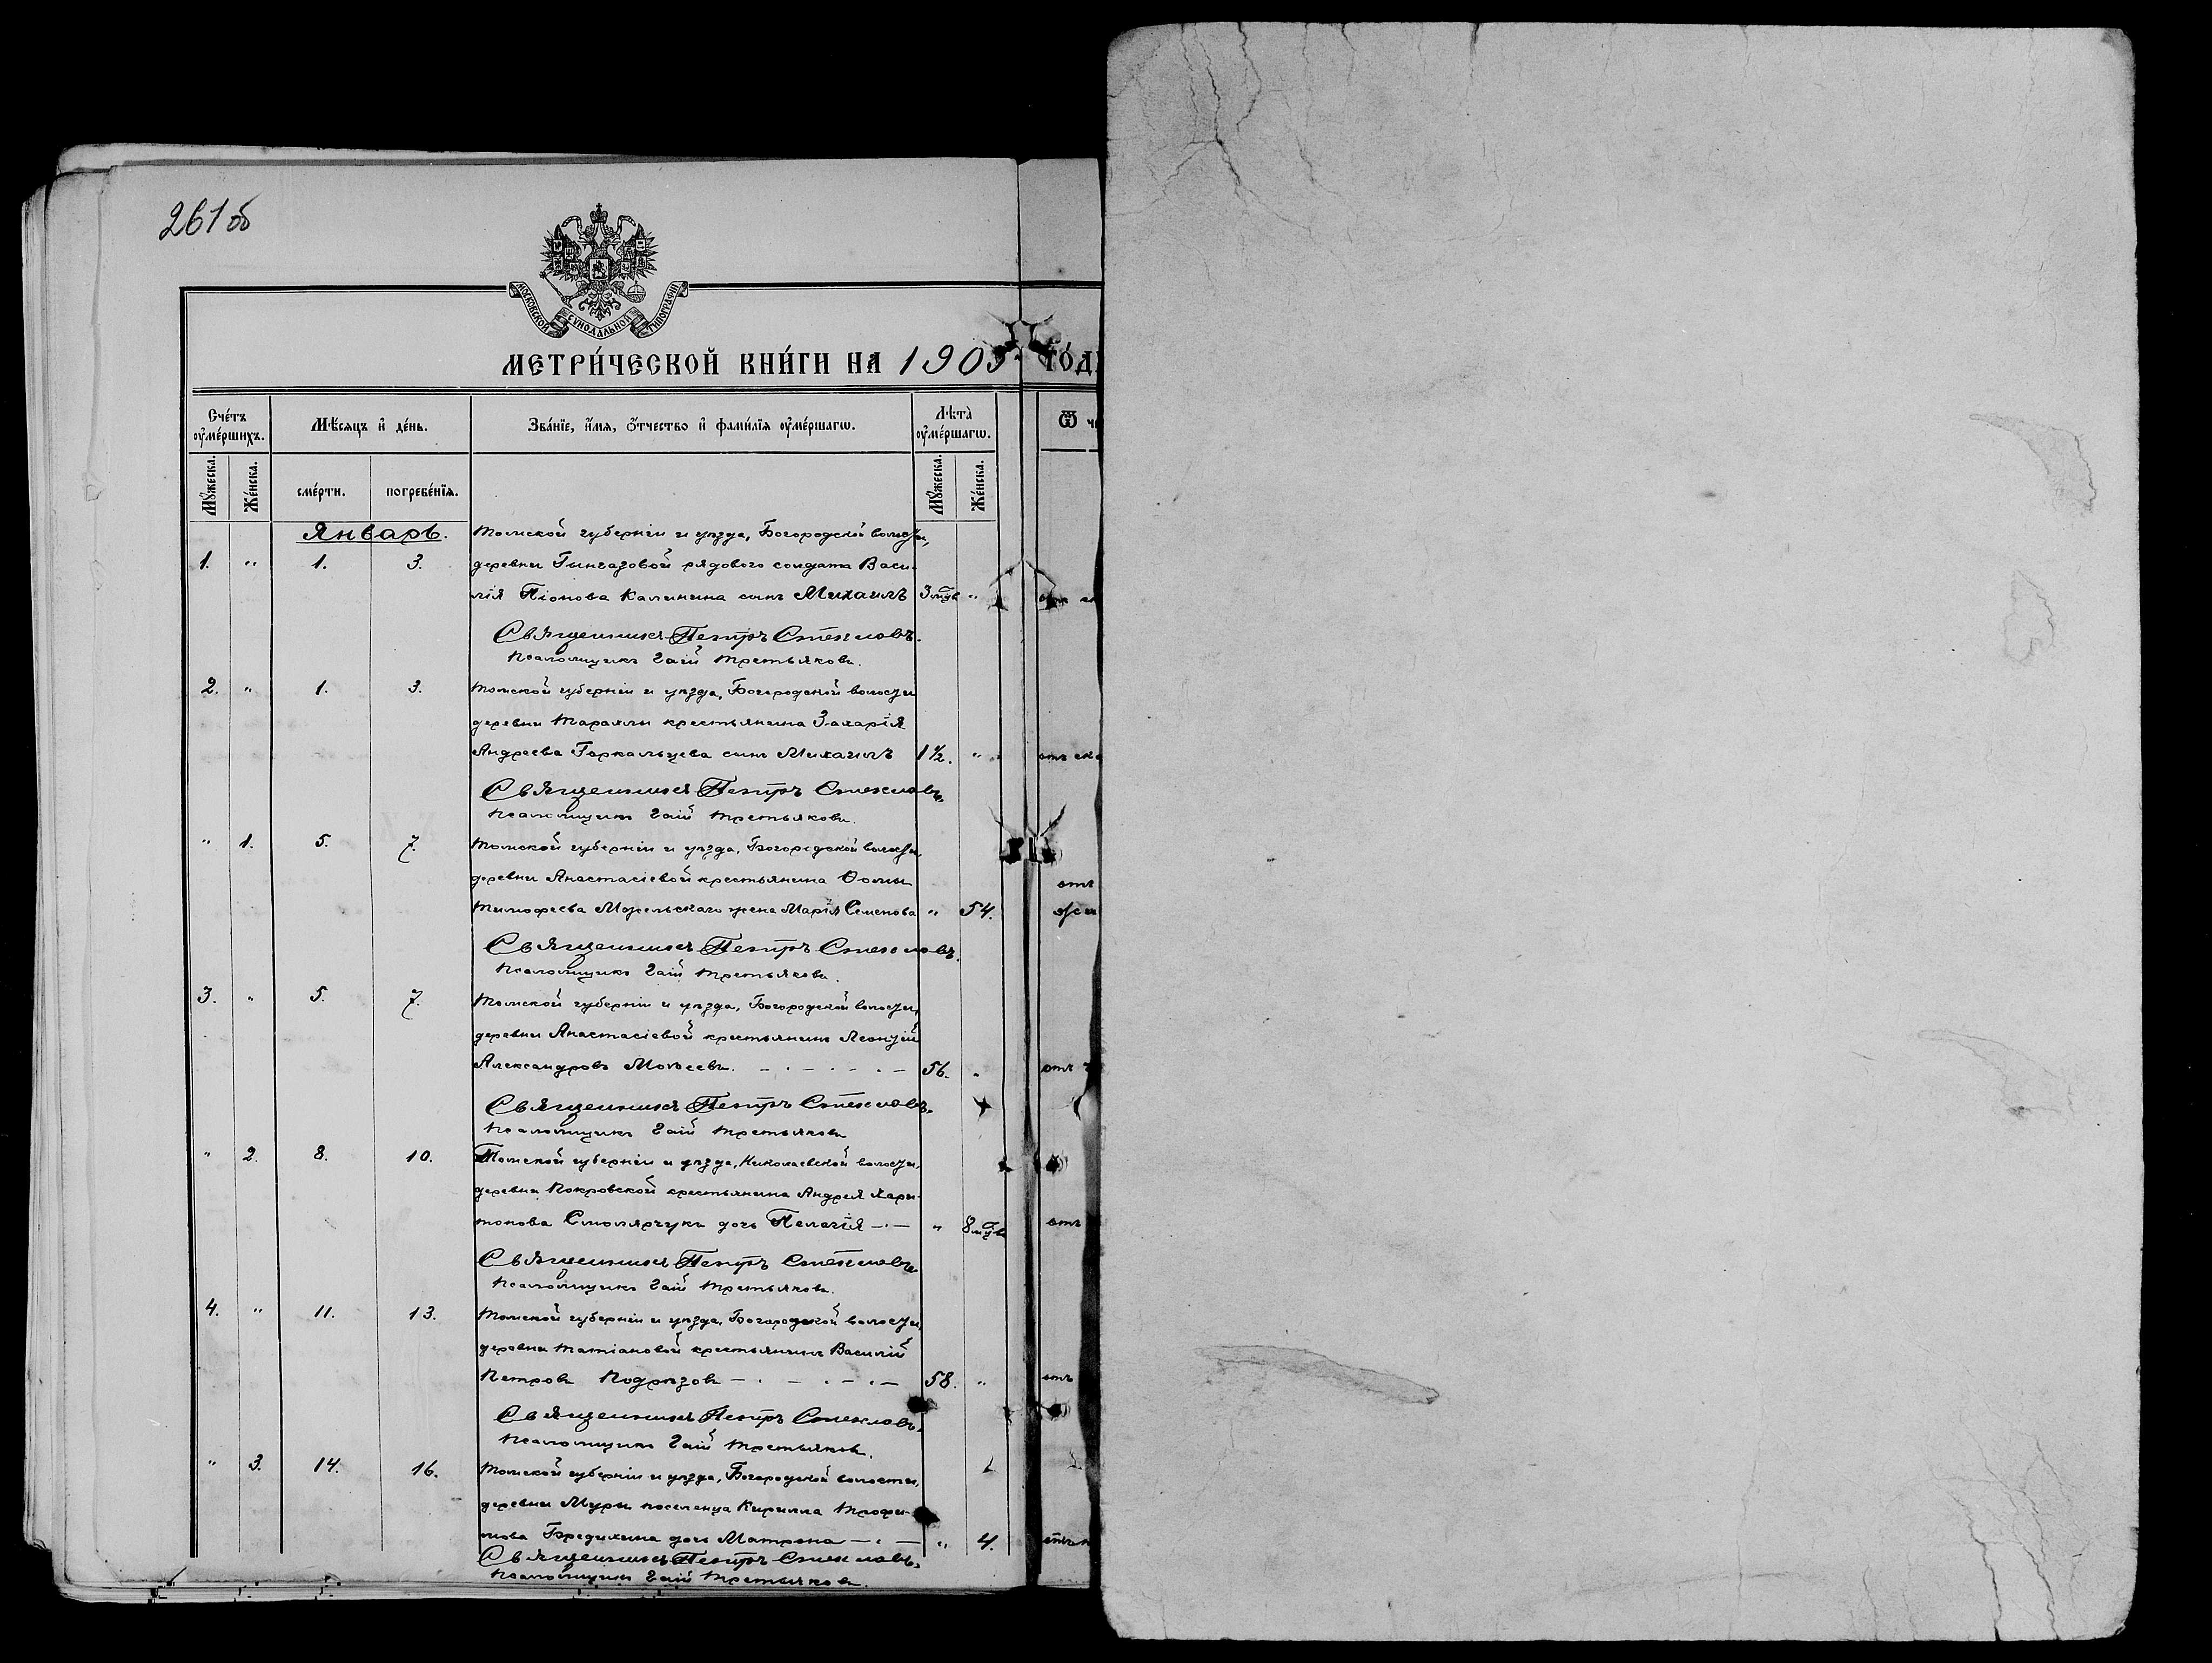 261 об
МОСКОВСКОЙ СѴНОДАЛЬНОЙ ТИПОГРАФІИ
МЕТРИ́ЧЕСКОЙ КНИ́ГИ НА 1905 ГО́Д
Сче́тъ оумéршихъ.
Мѣ́сяцъ и де́нь.
Зва́нїе, и́мя, ѻ́тчество и фами́лїя оумéршагѡ.
Лѣта̀ оумéршагѡ.
Ѿ ч
Мꙋжеска.
Же́нска.
сме́рти.
погребе́нїя.
Мꙋжеска.
Же́нска.
Январь.
Томской губерніи и уѣзда, Богородской волости,
1. " 1. 3. деревни Гынгазовой рядового солдата Васи-
лія Піонова Калинина сынъ Михаилъ 3 "
Священникъ Петръ Стеклов.
Псаломщикъ Гаій Третьяковъ.
2. " 1. 3. Томской губерніи и уѣзда, Богородской волости
деревни Тараклы крестьянина Захарія
Андреева Горкальцева сынъ Михаилъ 1 1/2. " отъ
Священникъ Петръ Стекловъ.
Псаломщикъ Гаій Третьяковъ.
" 1. 5. 7. Томской губерніи и уѣзда, Богородской волости,
деревни Анастасіевой крестьянина Ѳомы отъ
Тимофеева жена Марія Семенова " 54.
Священникъ Петръ Стекловъ.
Псаломщикъ Гаій Третьяковъ.
3. " 5. 7. Томской губерніи и уѣзда, Богородской волости,
деревни Анастасіевой крестьянинъ Леонтій
Александровъ Моисеевъ. 56. " отъ
Священникъ Петръ Стекловъ.
Псаломщикъ Гаій Третьяковъ
" 2. 8. 10. Томской губерніи и уѣзда, Николаевской волости,
деревни Покровской крестьянина Андрея Хари-
тонова Смолярчукъ дочь Пелагія " 8 отъ
Священникъ Петръ Стекловъ
Псаломщикъ Гаій Третьяковъ.
4. " 11. 13. Томской губерніи и уѣзда, Богородской волости,
деревни Татіановой крестьянинъ Василій
Петровъ Подрѣзовъ 58. " отъ
Священникъ Петръ Стекловъ.
Псаломщикъ Гаій Третьяковъ.
" 3. 14. 16. Томской губерніи и уѣзда, Богородской волости,
деревни Муры поселенца Кирилла Трофи-
мова Бредихина дочь Матрона " 4.
Священникъ Петръ Стекловъ.
Псаломщикъ Гаій Третьяковъ.